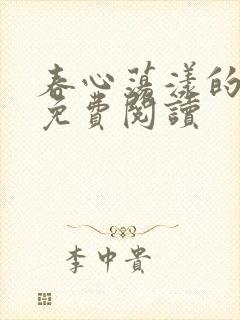 春心荡漾的
免費閱讀
李中貴